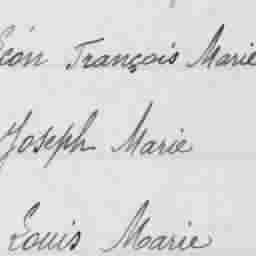 Léon François Marie
Joseph Marie
Louis Marie